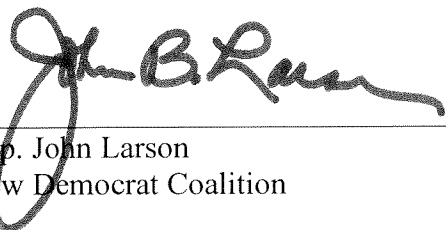 John B. Larson
p. John Larson
w Democrat Coalition